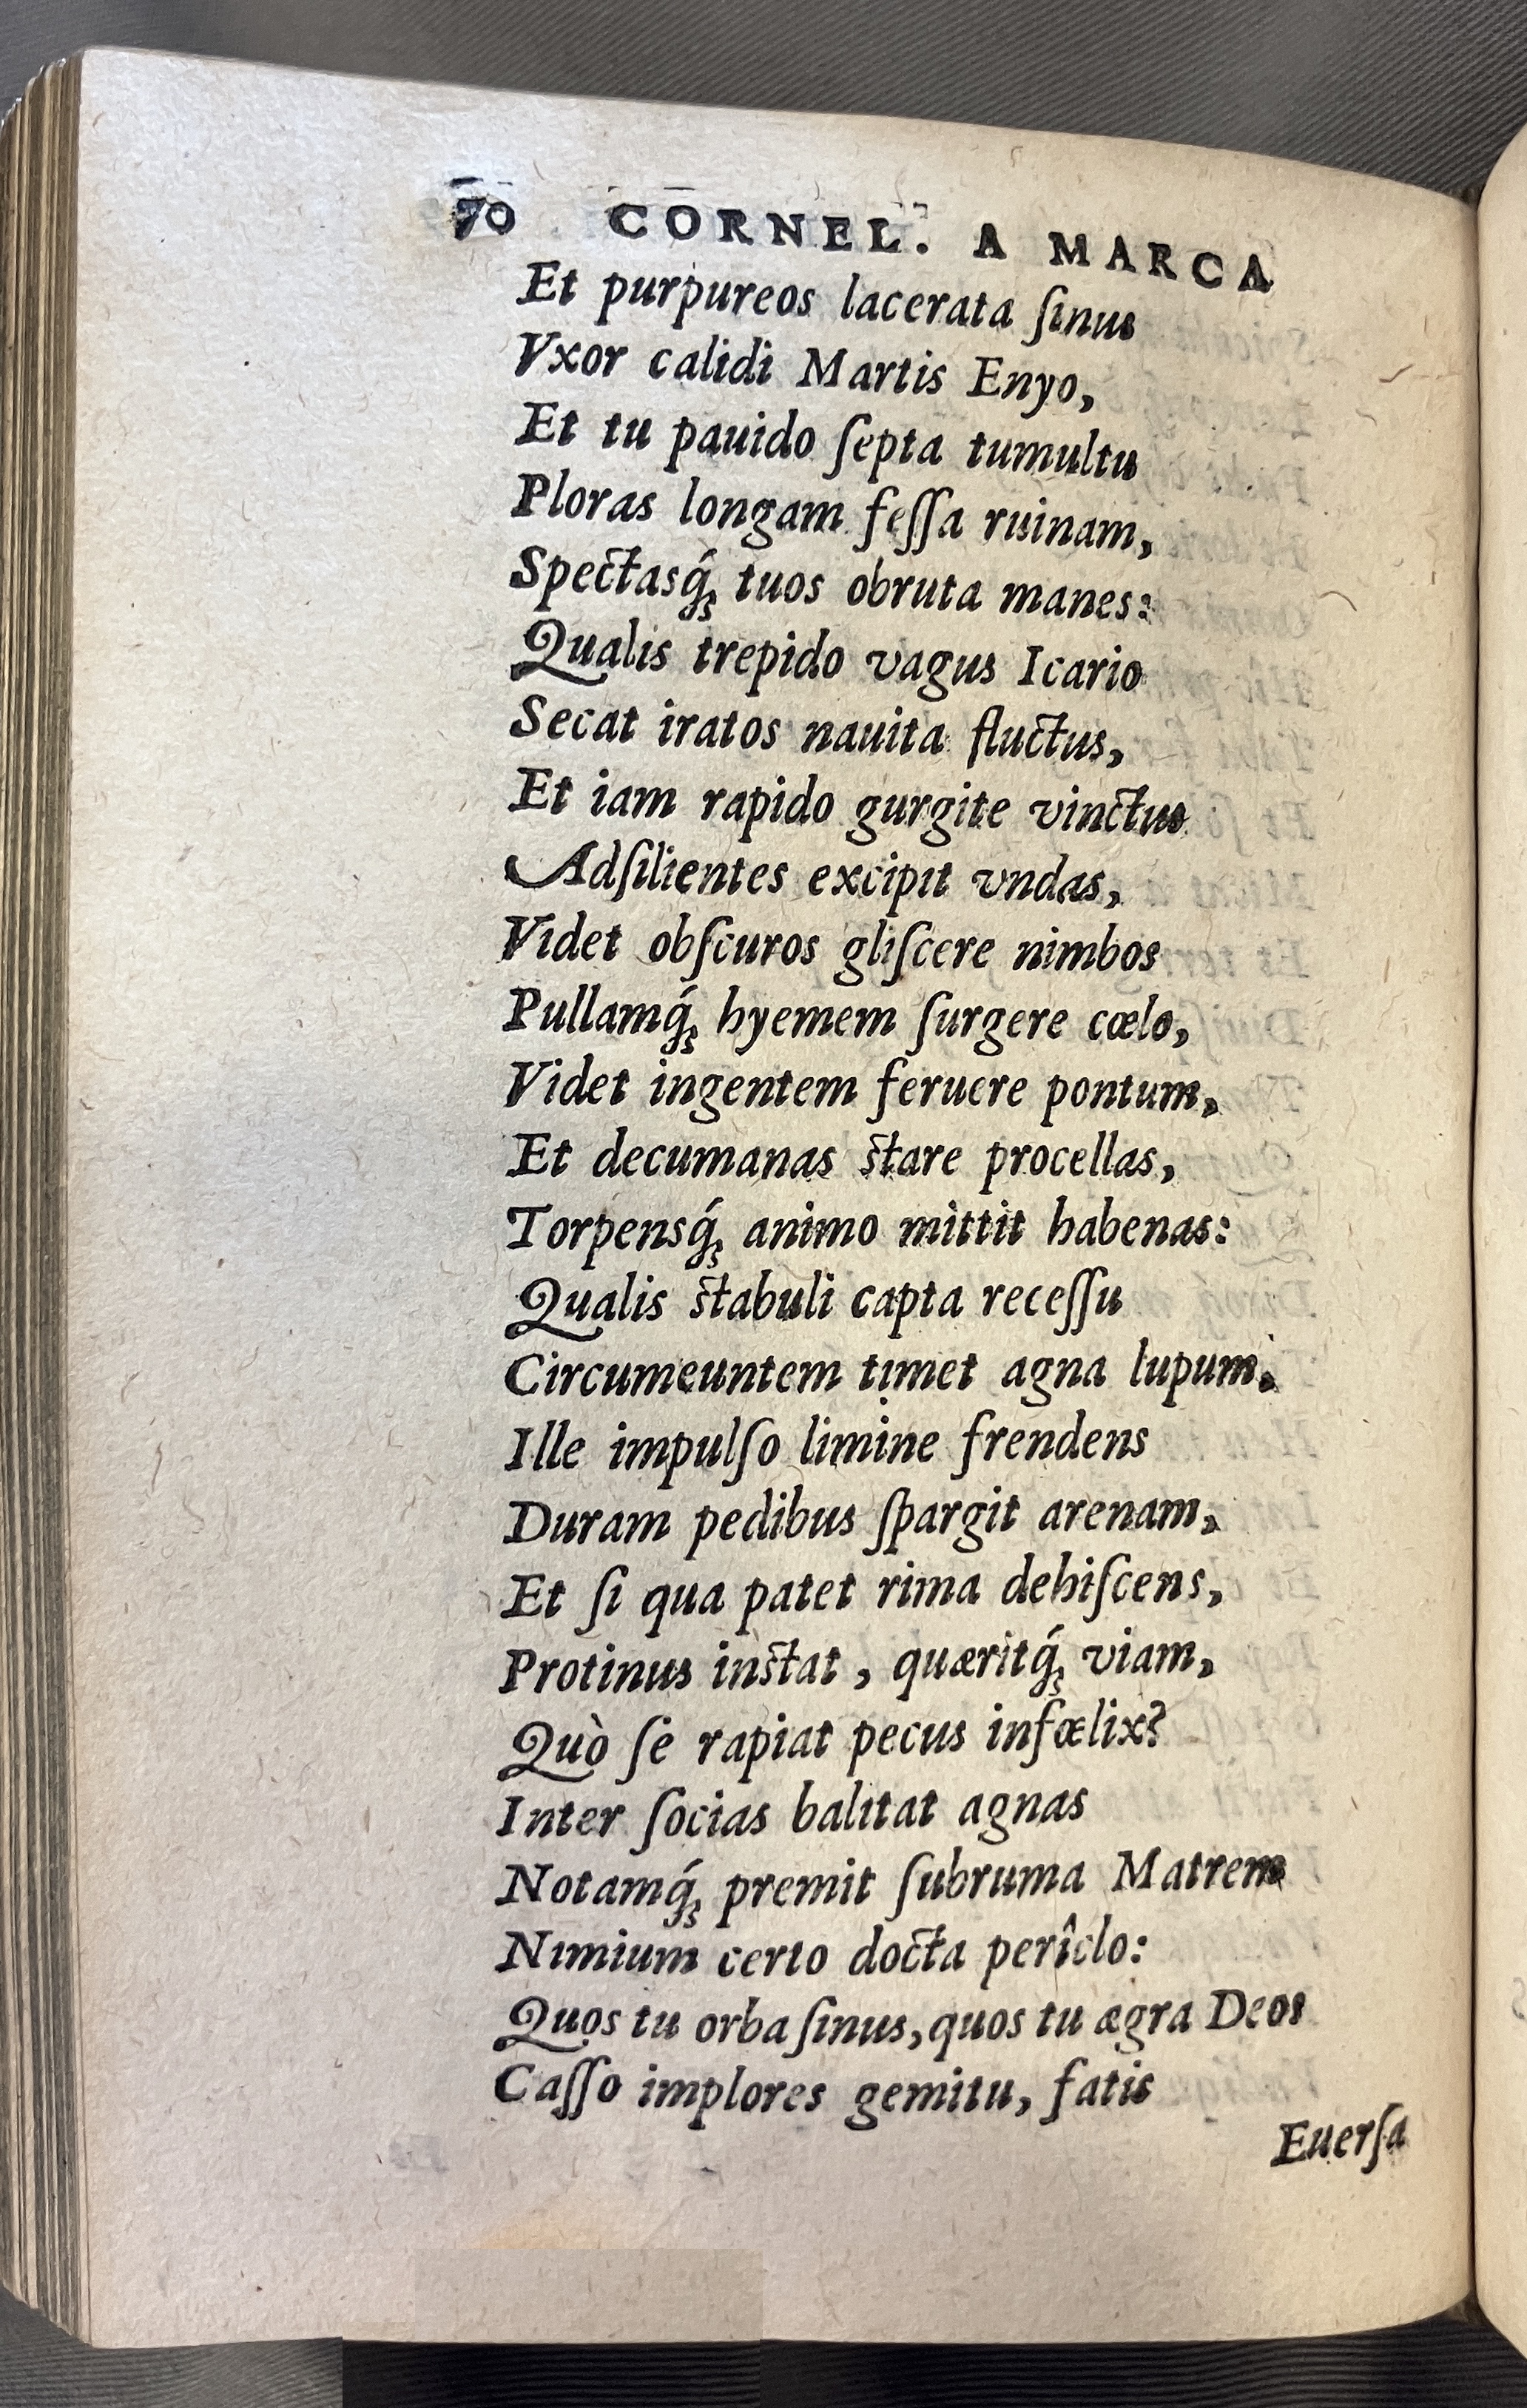 70 CORNEL. A MARCA
Et purpureos lacerata ſinus
Vxor calidi Martis Enyo,
Et tu pauido ſepta tumultu
Ploras longam feſſa ruinam,
Spectasq́; tuos obruta manes:
Qualis trepido vagus Icario
Secat iratos nauita fluctus,
Et iam rapido gurgite vinctus
Adſilientes excipit vndas,
Videt obſcuros gliſcere nimbos
Pullamq́; hyemem ſurgere cœlo,
Videt ingentem feruere pontum,
Et decumanas ſtare procellas,
Torpensq́; animo mittit habenas:
Qualis ſtabuli capta receſſu
Circumeuntem timet agna lupum.
Ille impulſo limine frendens
Duram pedibus ſpargit arenam,
Et ſi qua patet rima dehiſcens,
Protinus inſtat, quæritq́; viam,
Quò ſe rapiat pecus infœlix?
Inter ſocias balitat agnas
Notamq́; premit ſubruma Matrem
Nimium certo docta perîclo:
Quos tu orba ſinus, quos tu ægra Deos
Caſſo implores gemitu, fatis
Euerſa